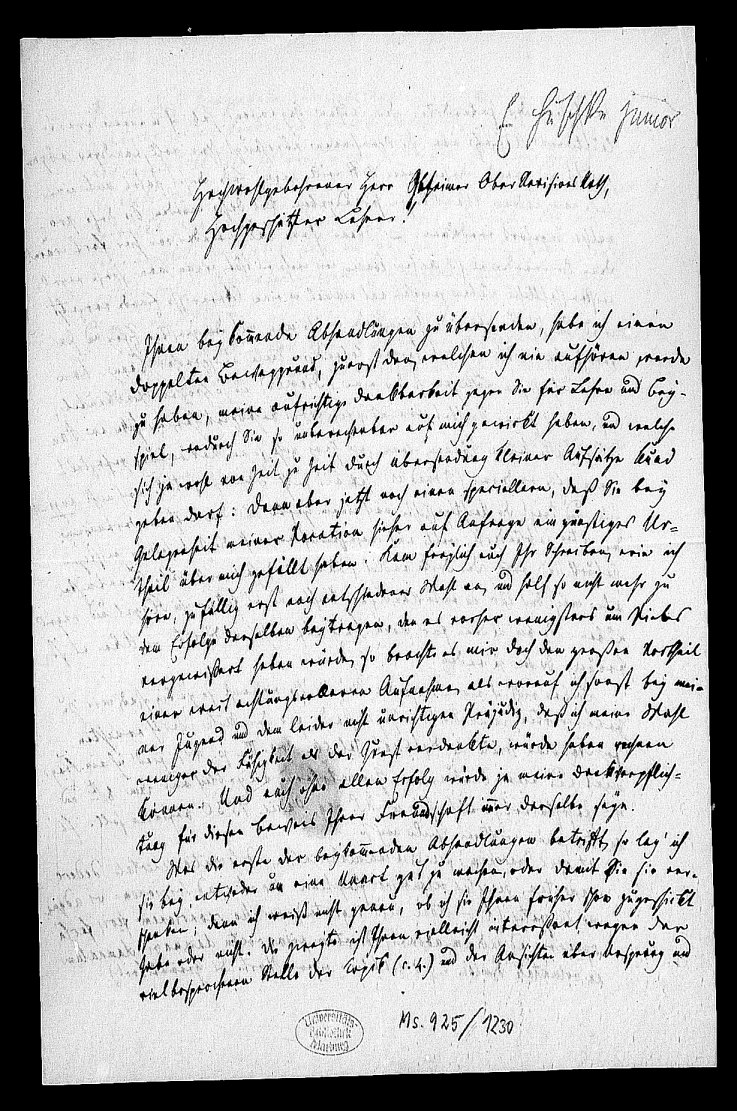 E Huschke junior
Hochwohlgebohrener Herr Geheimer Ober Revisions Rath,
Hochgeschätzter Lehrer!
Ihnen beykommende Abhandlungen zu übersenden, habe ich einen
doppelten Beweggrund, zuerst den, welchen ich nie aufhören werde
zu haben, meine aufrichtige Dankbarkeit gegen Sie für Lehre und Bey-
spiel, wodurch Sie so unberechenbar auf mich gewirkt haben, und welche
sich ja wohl von Zeit zu Zeit durch Übersendung kleiner Aufsätze Kund
geben darf: dann aber jetzt noch einen speciellern, daß Sie bey
Gelegenheit meiner Vocation hieher auf Anfrage ein günstiges Ur-
theil über mich gefällt haben. Kam freylich auch Ihr Schreiben, wie ich
höre, zufällig erst nach entschiedener Wahl an, und half so nicht mehr zu
dem Erfolge derselben beytragen, den es vorher wenigstens um Vieles
vergewissert haben würde, so brachte es mir doch den großen Vortheil
einer weit achtungsvolleren Aufnahme, als worauf ich sonst bey mei-
ner Jugend und dem leider nicht unrichtigen Präjudiz, daß ich meine Wahl
weniger der Fähigkeit als der Gunst verdankte, würde haben rechnen
können. Und auch ohne allen Erfolg würde ja meine Dankverpflich-
tung für diesen Beweis Ihrer Freundschaft immer dieselbe seyn.
Was die erste der beykommenden Abhandlungen betrifft, so leg' ich
sie bey, entweder um eine Unart gut zu machen, oder damit Sie sie ver-
schenken; denn ich weiß nicht genau, ob ich sie Ihnen früher schon zugeschickt
habe oder nicht. Die zweyte ist Ihnen vielleicht interessant wegen der
vielbesprochenen Stelle der Topik (c. 4.) und der Ansichten über Ursprung und
Universitäts-
Bibliothek
Marburg
Ms. 925/1230